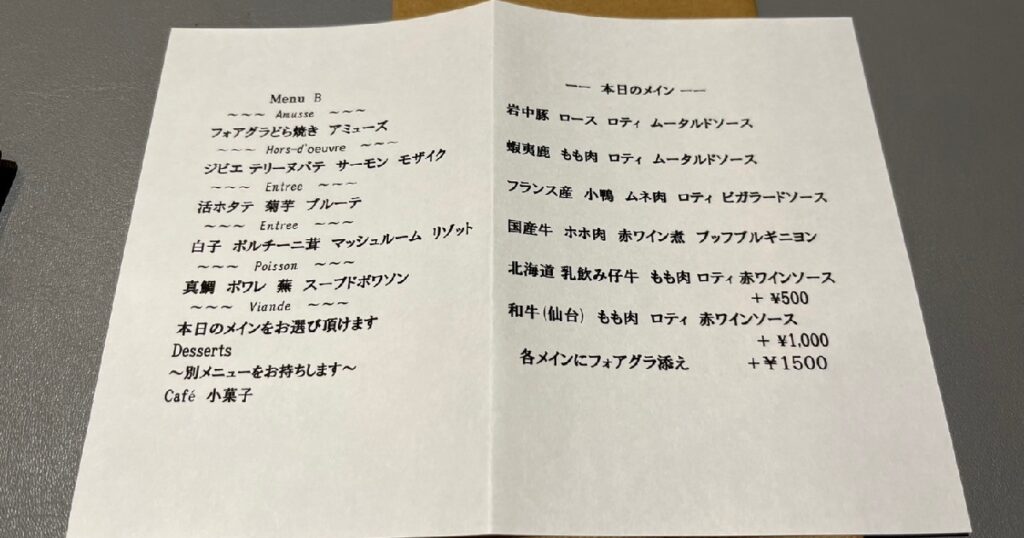 Menu B
～～～ Amusse ～～～
フォアグラどら焼き アミューズ
～～～ Hors-d'oeuvre ～～～
ジビエ テリーヌパテ サーモン モザイク
～～～ Entree ～～～
活ホタテ 菊芋 ブルーテ
～～～ Entree ～～～
白子 ポルチーニ茸 マッシュルーム リゾット
～～～ Poisson ～～～
真鯛 ポワレ 蕪 スープドポワソン
～～～ Viande ～～～
本日のメインをお選び頂けます
Desserts
～別メニューをお持ちします～
Café 小菓子
―― 本日のメイン ――
岩中豚 ロース ロティ ムータルドソース
蝦夷鹿 もも肉 ロティ ムータルドソース
フランス産 小鴨 ムネ肉 ロティ ビガラードソース
国産牛 ホホ肉 赤ワイン煮 ブッフブルギニヨン
北海道 乳飲み仔牛 もも肉 ロティ 赤ワインソース
+ ¥500
和牛(仙台) もも肉 ロティ 赤ワインソース
+ ¥1,000
各メインにフォアグラ添え +¥1500